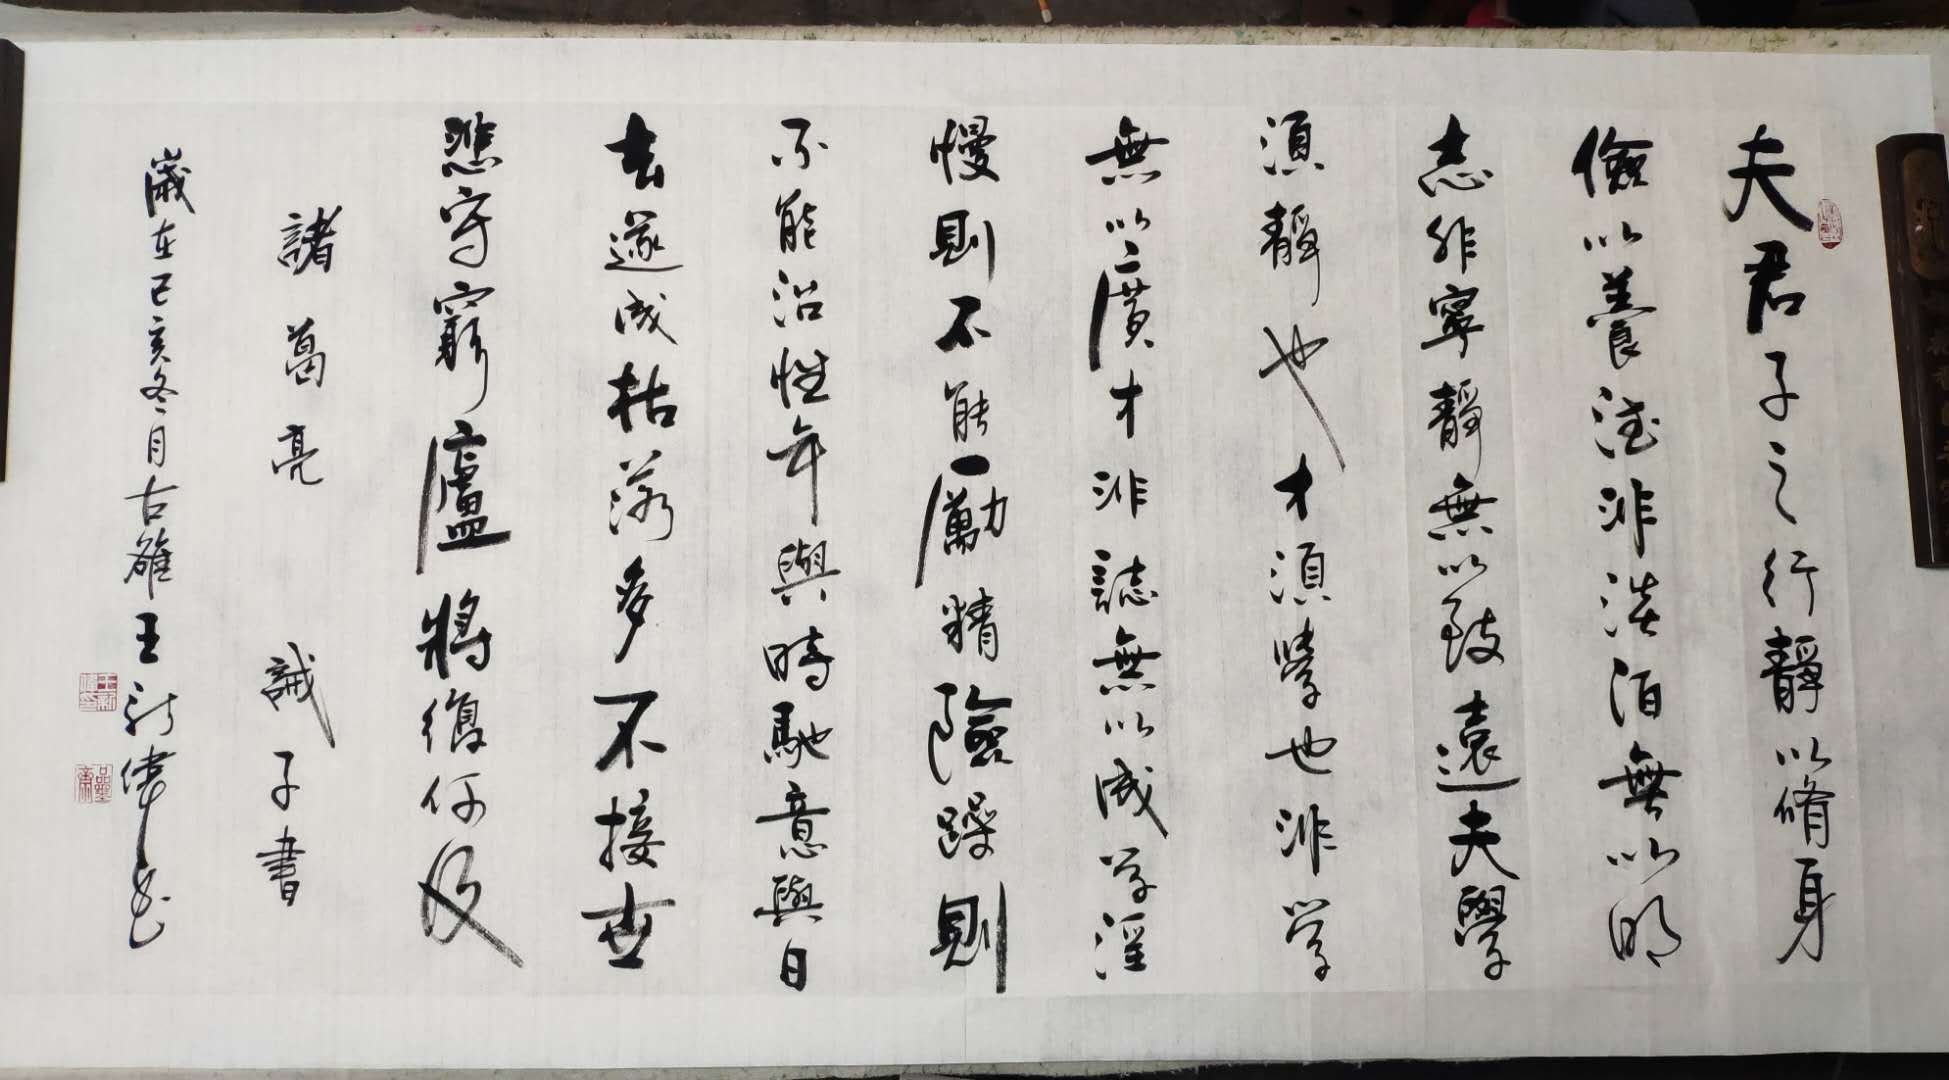 夫君子之行靜以脩身
儉以養德非淡泊無以明
志非寧靜無以致遠夫學
須靜也才須學也非学
無以廣才非誌無以成学淫
慢則不能勵精險躁則
不能治性年與時馳意與日
去遂成枯落多不接世
悲守窮廬將復何及
諸葛亮 誡子書
歲在己亥冬月古雒王新偉書